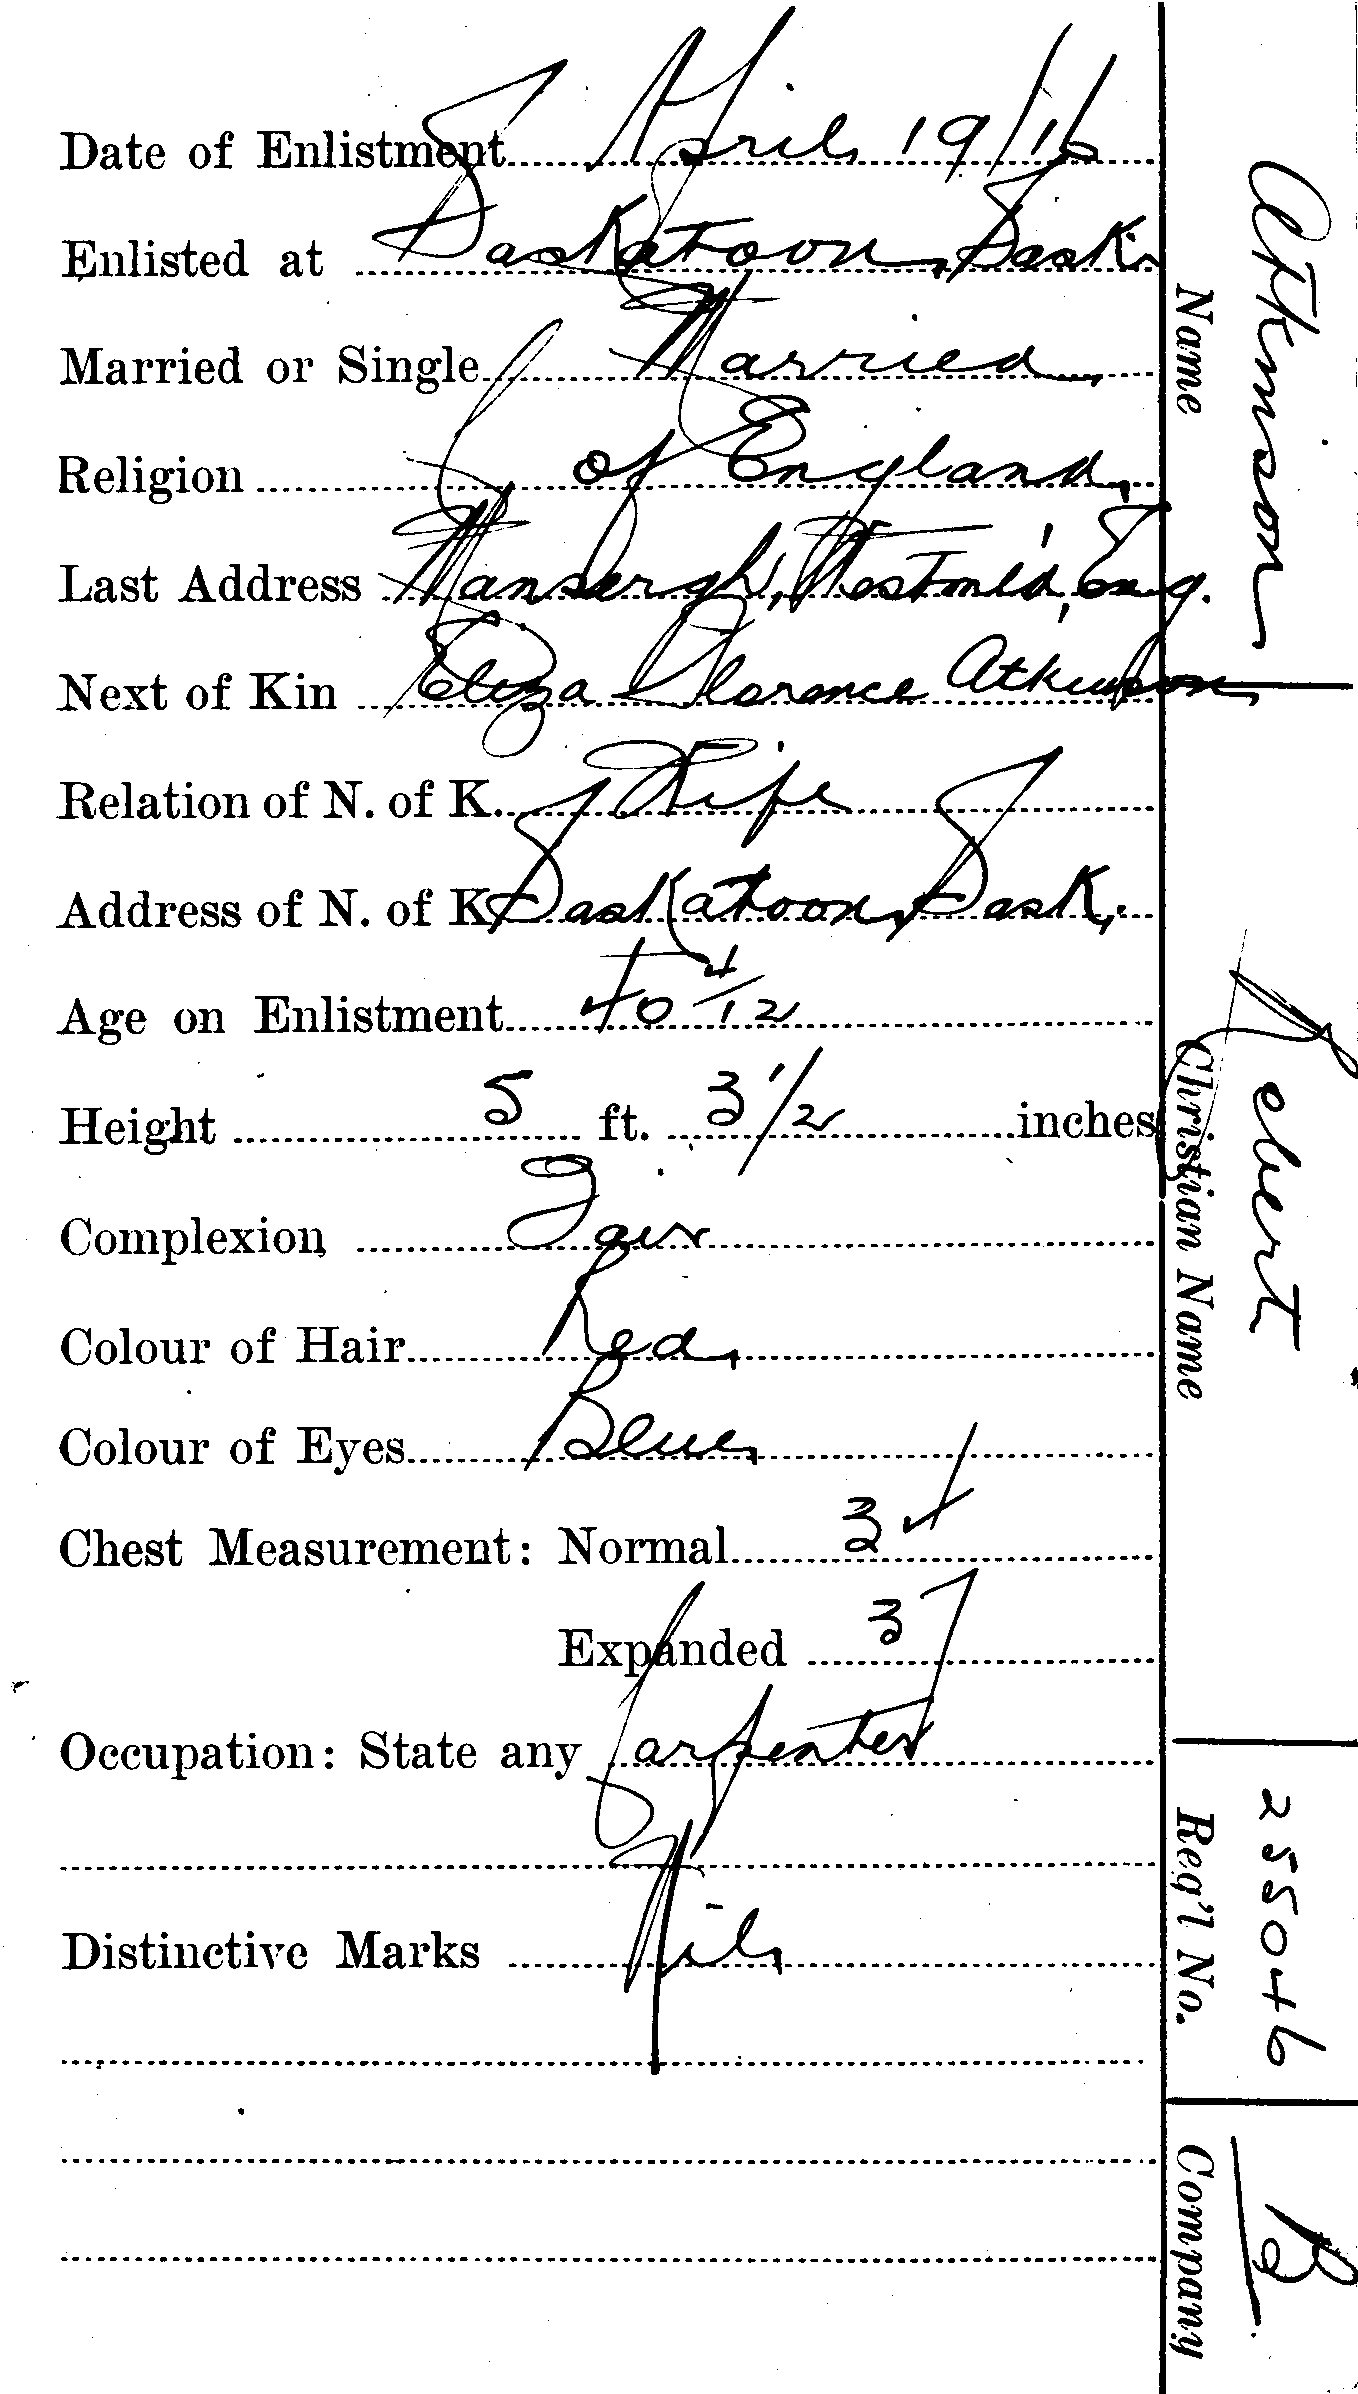 Date of Enlistment April 19/16
Enlisted at Saskatoon, Sask.
Married or Single Married
Religion C of England,
Last Address Mansergh, Westm'l'd, Eng.
Next of Kin Eliza Florence Atkinson
Relation of N. of K. Wife
Address of N. of K. Saskatoon, Sask.
Age on Enlistment 40 4/12
Height 5 ft. 3 1/2 inches
Complexion Fair
Colour of Hair Red
Colour of Eyes Blue
Chest Measurement: Normal 34
Expanded 37
Occupation: State any Carpenter
Distinctive Marks Nil
Name Atkinson
Christian Name Robert
Reg'l No. 255046
Company B